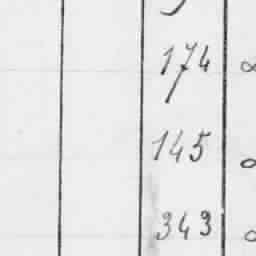 174
145
343